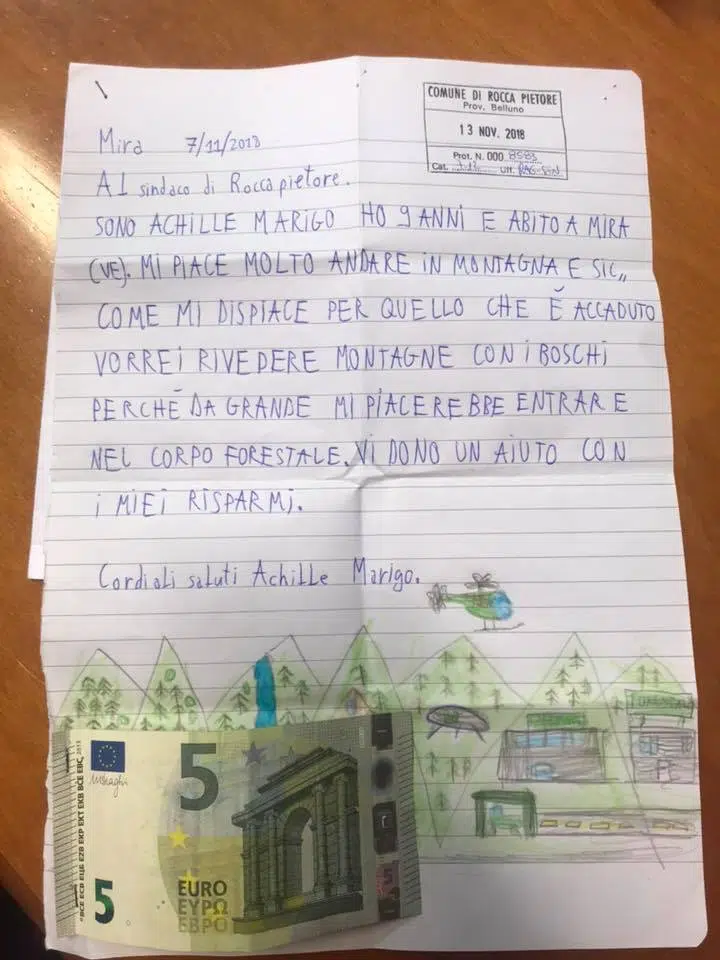 COMUNE DI ROCCA PIETORE
Prov. Belluno
13 NOV. 2018
Prot. N. 000 8583
Cat. Uff.
Mira 7/11/2018
Al sindaco di Roccapietore.
SONO ACHILLE MARIGO HO 9 ANNI E ABITO A MIRA
(VE). MI PIACE MOLTO ANDARE IN MONTAGNA E SIC,,
COME MI DISPIACE PER QUELLO CHE È ACCADUTO
VORREI RIVEDERE MONTAGNE CON I BOSCHI
PERCHÉ DA GRANDE MI PIACEREBBE ENTRARE
NEL CORPO FORESTALE. VI DONO UN AIUTO CON
I MIEI RISPARMI.
Cordiali saluti Achille Marigo.
5
EURO
ΕΥΡΩ
ЕВРО
5
BCE ECB ЕЦБ EZB EKP EKT EKB BĊE EBC 2013